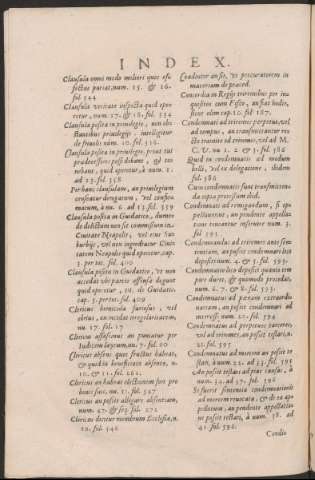 INDEX.
Clausula omni modo meliori quos effectus pariat, num. 15. & 16.
fol. 544
Clausula veritate inspecta quid operetur, num. 17. & 18. fol. 554
Clausula posita in privilegio, non obstantibus privilegijs intelligitur
de fendis num. 10. fol. 516.
Clausula posita in privilegio, prout tui
prædecessores possidebant, & tenebant, quid operetur, à num. 1.
ad 23. fol. 558
Per hanc clausulam, an privilegium
censeatur derogatum, vel confirmatum, à nu. 6. ad 13. fol. 559
Clausula posita in Guidatico, dummodo
de debitum non sit commissum in
Civitate Neapolis, vel eius Suburbijs, vel non ingrediatur Civitatem Neapolis quid operetur, cap.
3. per tot. fol. 410
Clausula posita in Guidatico, & non
accedat ubi partes offensæ degunt
quid operetur, tit. de Guidatic.
cap. 5. per tot. fol. 409
Clericus homicida furiosus, vel
ebrius, an incidat irregularitatem,
nu. 17. fol. 17
Clericus assassinus an puniatur per
Iudicem laicum, nu. 7. fol. 20
Clericus absens quos fructus habeat,
& quid in beneficiato absente, n.
10. & 11. fol. 262.
Clericus an habeat electionem fori pro
bonis suis, nu. 1. fol. 527
Clericus an possit allegare absentiam,
num. 47. & seq. fol. 272
Clericus dicitur membrum Ecclesiæ, n.
22. fol. 546
Conductor an sit, vt procuratorem in
materiam de præced.
Concordia in Regijs

triremibus per inquisitos cum Fisco, an fiat hodie,
sicut olim cap. 10. fol. 587.
Condemnati ad triremes perpetuæ, vel
ad tempus, an transmittantur recto tramite ad triremes, vel ad M.
C. V. nu. 1. 2. & 3. fol. 586
Quid in condemnatis ad modum
belli, vel ex delegatione, ibidem
fol. 586
Cum condemnatis sunt transmittenda
copia processus ibid.
Condemnati ad remigandum, si appellaverint, an pendente appellatione teneantur inservire num. 3.
fol. 595
Condemnandus ad triremes ante sententiam, an possit condemnari loco
depositi num. 4. & 5. fol. 595.
Condemnatio loco depositi quanto tempore duret, & quomodo procedat,
num. 6. 7. & 8. fol. 595.
Condemnatus ad pœnam extraordinariam, an possit condemnari ad
interesse num. 21. fol. 594
Condemnatus ad perpetuos carceres,
vel ad triremes, an possit testari, n.
21. fol. 595
Condemnatus ad mortem an possit testari, à num. 22. ad 33. fol. 595
An possit testari ad pias causas, à
num. 34. ad 37. fol. 596
Si fuerit sententia condemnationis
ad mortem revocata, & de ea appellatum, an pendente appellatione possit testari, à num. 38. ad
41. fol. 596.
Condi-